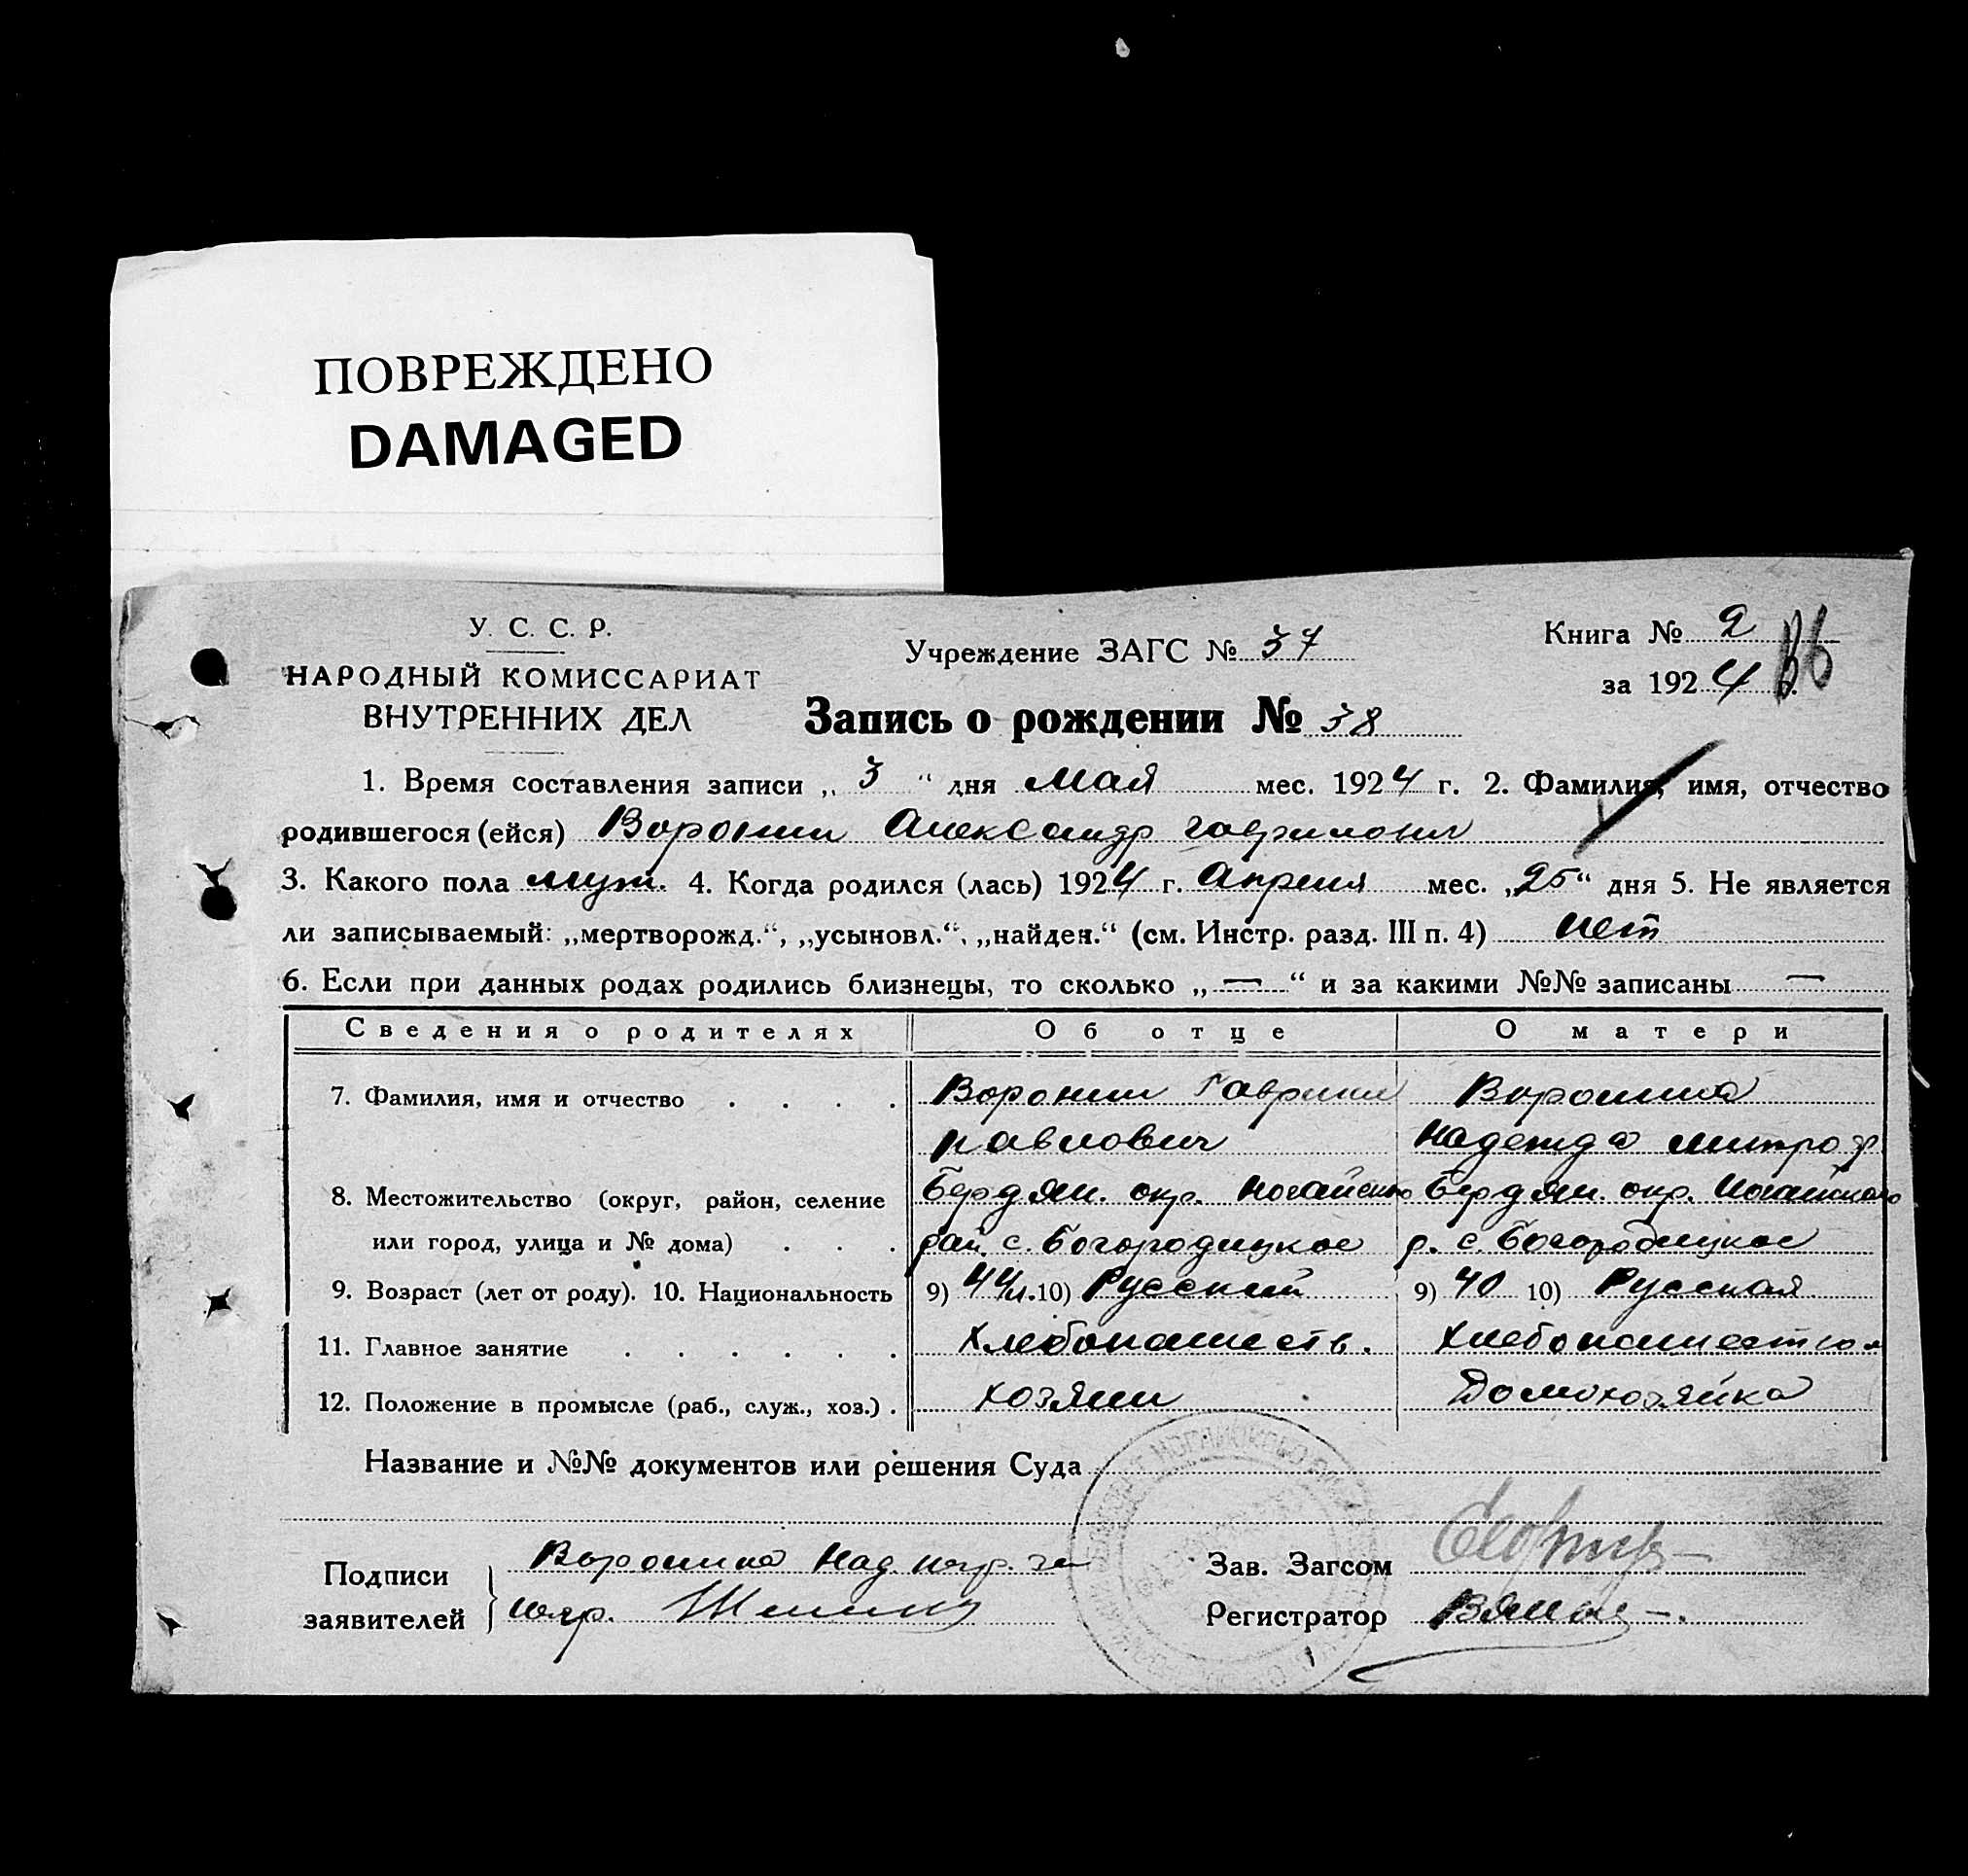 ПОВРЕЖДЕНО
DAMAGED
У. С. С. Р.
НАРОДНЫЙ КОМИССАРИАТ
ВНУТРЕННИХ ДЕЛ
Учреждение ЗАГС № 37
Книга № 2
за 1924 г.
Запись о рождении № 38
1. Время составления записи „ 3 “ дня Мая мес. 1924 г. 2. Фамилия, имя, отчество
родившегося (ейся) Воронин Александр Гаврилович
3. Какого пола муж. 4. Когда родился (лась) 1924 г. Апреля мес. „25“ дня 5. Не является
ли записываемый: „мертворожд.“, „усыновл.“, „найден.“ (см. Инстр. разд. III п. 4) нет
6. Если при данных родах родились близнецы, то сколько „ — “ и за какими №№ записаны —
Сведения о родителях Об отце О матери
7. Фамилия, имя и отчество . . . . Воронин Гавриил Воронина
павлович Надежда митроф
8. Местожительство (округ, район, селение Бердян. окр. Ногайского Бердян. окр. Ногайского
или город, улица и № дома) . . . рай. с. Богородицкое р. с. Богородицкое
9. Возраст (лет от роду). 10. Национальность 9) 44 л. 10) Русский 9) 40 10) Русская
11. Главное занятие . . . . . . Хлебопашеств. Хлебопашество
12. Положение в промысле (раб., служ., хоз.) . хозяин Домохозяйка
Название и №№ документов или решения Суда
Подписи
заявителей
Воронина Над. негр. за
негр.
Зав. Загсом
Регистратор